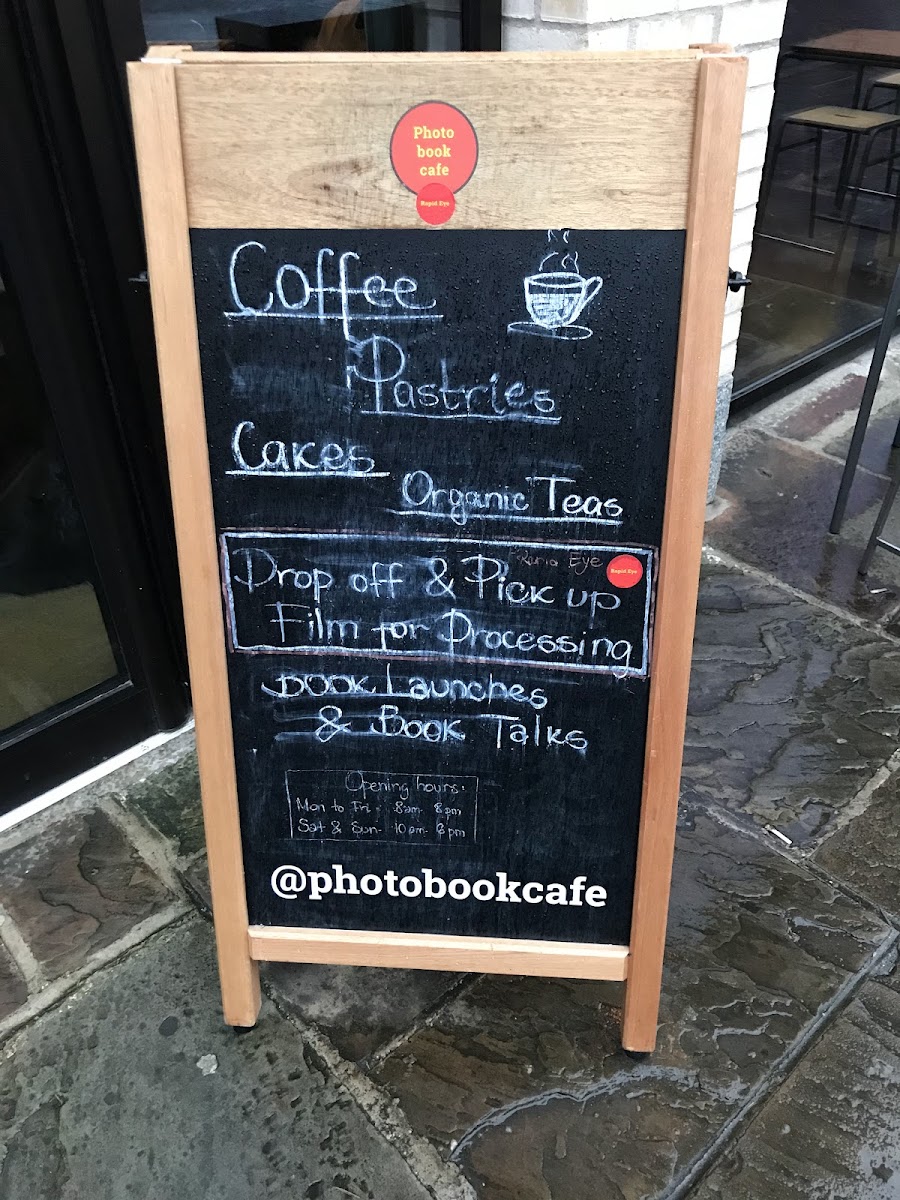 Photo
book
cafe
Rapid Eye
Coffee
Pastries
Cakes
Organic Teas
Rapid Eye
Rapid Eye
Drop off & Pick up
Film for Processing
BOOK Launches
& BOOK Talks
Opening hours:
Mon to Fri - 8am - 8pm
Sat & Sun - 10am - 6pm
@photobookcafe